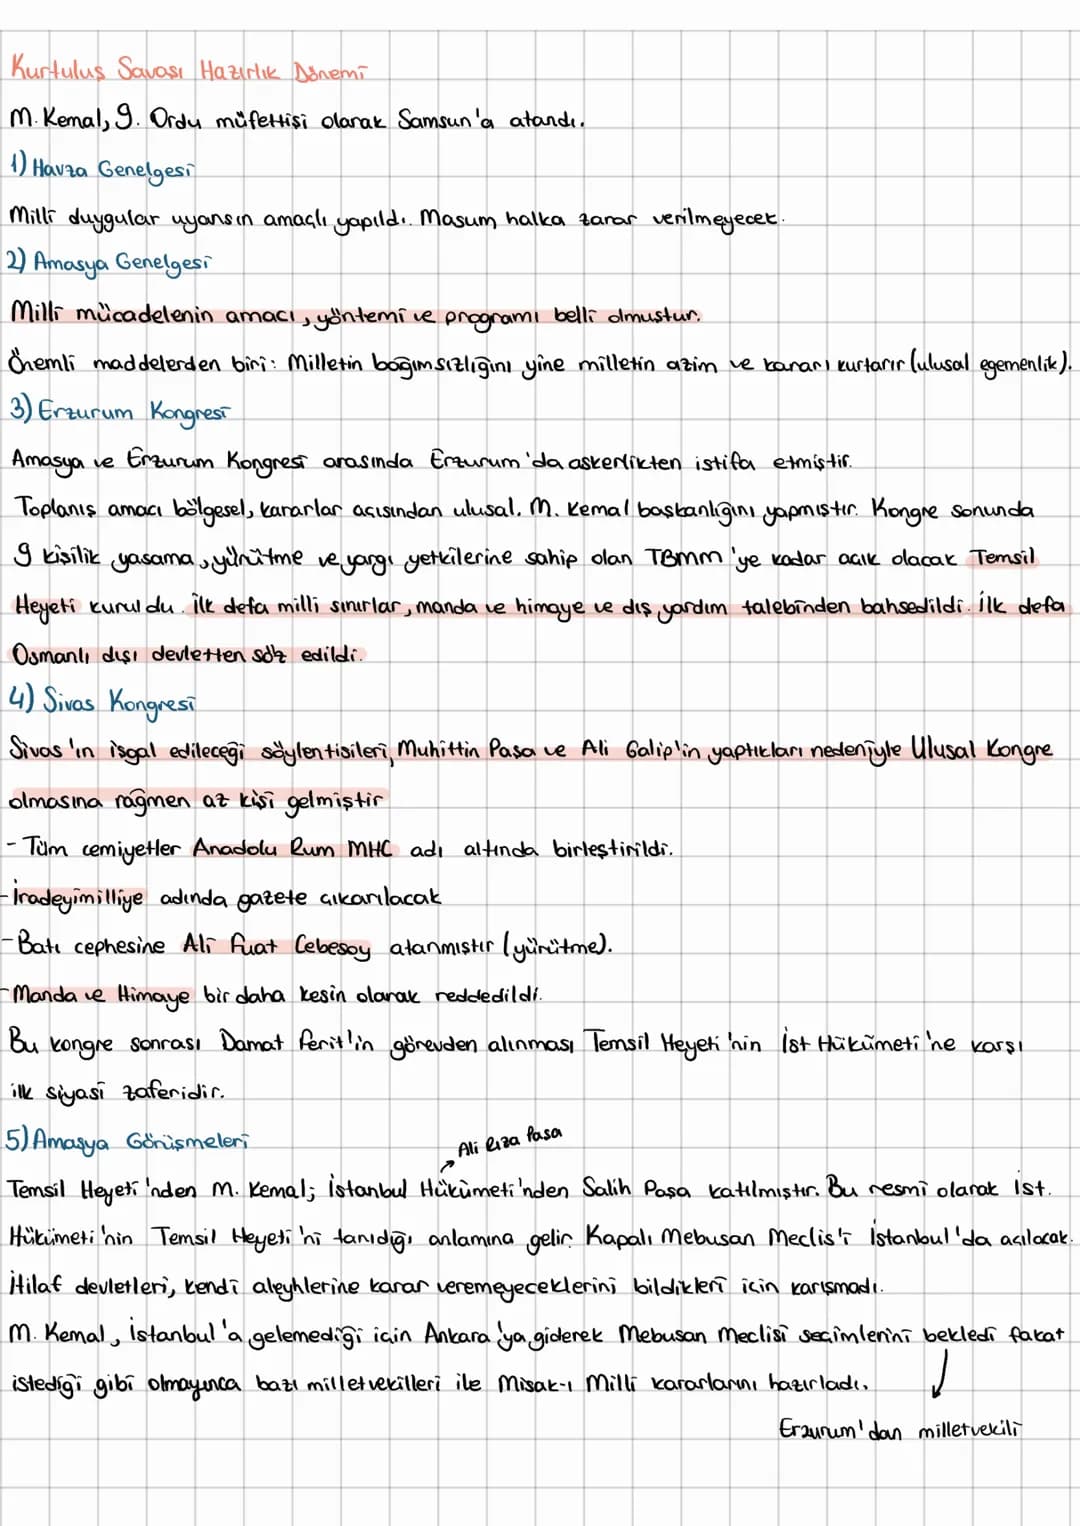 Kurtuluş Savaşı Hazırlık Dönemi
M. Kemal, 9. Ordu müfettişi olarak Samsun'a atandı.
1) Havza Genelgesi
Milli duygular uyansın amaçlı yapıldı. Masum halka zarar verilmeyecek.
2) Amasya Genelgesi
Milli mücadelenin amacı, yöntemi ve programı belli olmuştur.
Önemli maddelerden biri: Milletin bağımsızlığını yine milletin azim ve kararı kurtarır (ulusal egemenlik).
3) Erzurum Kongresi
Amasya ve Erzurum Kongresi arasında Erzurum'da askerlikten istifa etmiştir.
Toplanış amacı bölgesel, kararlar açısından ulusal. M. Kemal başkanlığını yapmıştır. Kongre sonunda
9 kişilik yasama, yürütme ve yargı yetkilerine sahip olan TBMM'ye kadar açık olacak Temsil
Heyeti kuruldu. İlk defa milli sınırlar, manda ve himaye ve dış yardım talebinden bahsedildi. İlk defa
Osmanlı dışı devletten söz edildi.
4) Sivas Kongresi
Sivas'ın işgal edileceği söylentisileri, Muhittin Paşa ve Ali Galip'in yaptıkları nedeniyle Ulusal Kongre
olmasına rağmen az kişi gelmiştir
- Tüm cemiyetler Anadolu Rum MHC adı altında birleştirildi.
- İradeyimilliye adında gazete çıkarılacak
- Batı cephesine Ali Fuat Cebesoy atanmıştır (yürütme).
- Manda ve Himaye bir daha kesin olarak reddedildi.
Bu kongre sonrası Damat Ferit'in görevden alınması Temsil Heyeti'nin İst Hükümeti'ne karşı
ilk siyasi zaferidir.
5) Amasya Görüşmeleri
Ali Rıza Paşa
Temsil Heyeti'nden M. Kemal; İstanbul Hükümeti'nden Salih Paşa katılmıştır. Bu resmi olarak İst.
Hükümeti'nin Temsil Heyeti'ni tanıdığı anlamına gelir. Kapalı Mebusan Meclis'i İstanbul'da açılacak.
İtilaf devletleri, kendi aleyhlerine karar veremeyeceklerini bildikleri için karışmadı.
M. Kemal, İstanbul'a gelemediği için Ankara'ya giderek Mebusan Meclisi seçimlerini bekledi fakat
istediği gibi olmayınca bazı milletvekilleri ile Misak-ı Milli kararlarını hazırladı.
Erzurum'dan milletvekili